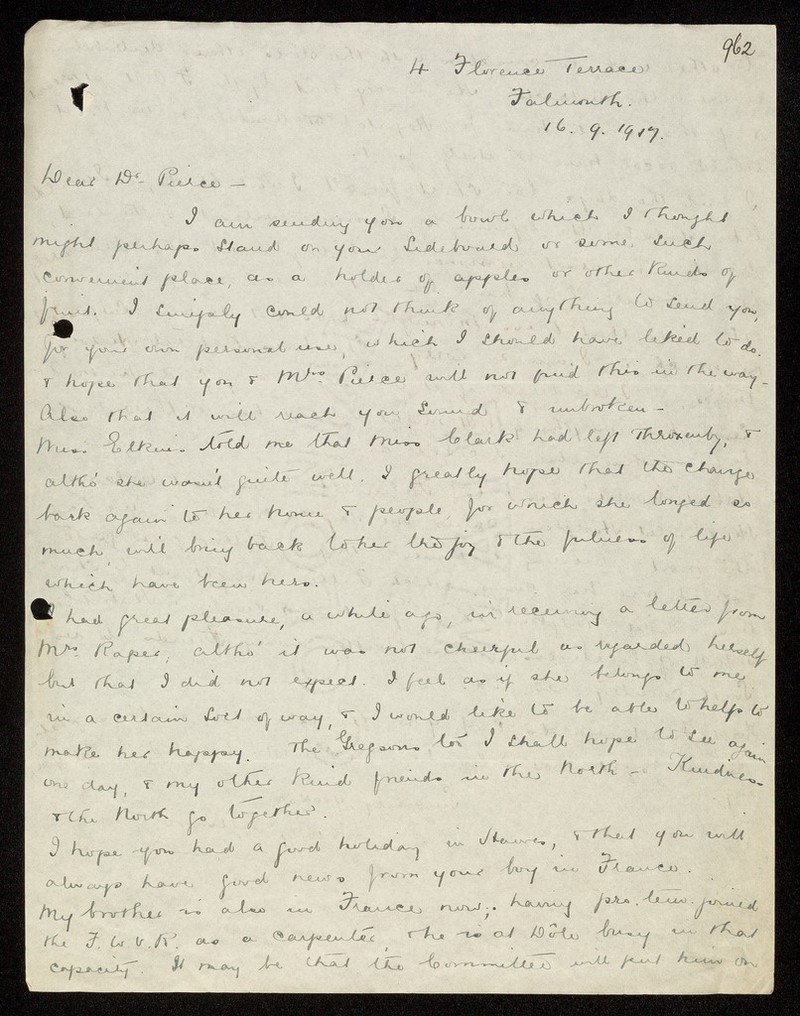 962
4 Florence Terrace
Falmouth.
16. 9. 1917.
Dear Dr. Pierce —
I am sending you a bowl which I thought
might perhaps stand on your sideboard or some such
convenient place, as a holder of apples or other kinds of
fruit. I simply could not think of anything to send you,
for your own personal use, which I should have liked to do.
& hope that you & Mrs Pierce will not find this in the way —
Also that it will reach you sound & unbroken —
Miss Elkins told me that Miss Clark had left Throxenby, &
altho' she wasn't quite well. I greatly hope that the change
back again to her home & people, for which she longed so
much, will bring back to her the joy & the fulness of life
which have been hers.
I had great pleasure, a while ago, in receiving a letter from
Mrs. Raper, altho' it was not cheerful as regarded herself
but that I did not expect. I feel as if she belongs to me
in a certain sort of way, & I would like to be able to help to
make her happy. The Gregsons too I shall hope to see again
one day, & my other kind friends in the North — Kindness
& the North go together.
I hope you had a good holiday in Hawes, & that you will
always have good news from your boy in France.
My brother is also in France now; having pro. tem. joined
the F.W.V.R. as a carpenter, & he is at Dôle busy in that
capacity. It may be that the Committee will put him on